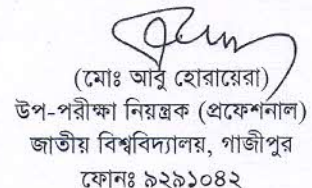 (মোঃ আবু হোরায়রা)
উপ-পরীক্ষা নিয়ন্ত্রক (প্রফেশনাল)
জাতীয় বিশ্ববিদ্যালয়, গাজীপুর
ফোনঃ ৯২৯১০৪২